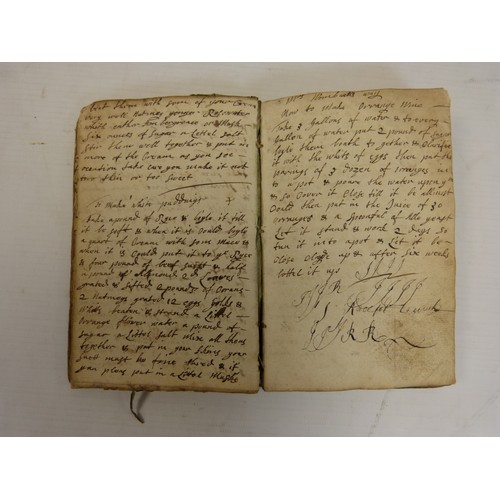 beat them with some of your Cream
very well Nutmeg ginger Rosewater
which rather
Six ounces of Sugar a Littel Salt
Stir them well together & put in
more of the Creame as you see
ocation take care you make it not
two thin or too sweet
To Make white puddings
take a pound of Rice & boyle it till
it be soft & when it is Could boyle
a pint of Cream with some Mace &
when it is Could put it into yr Rice
& four pound of beef suett & half
a pound of Almonds 20
grated & sifted 2 pounds of Corrans
2 Nutmegs grated 12 eggs yolks &
whits beaten & strained a Littel
orrange flower water a pound of
Sugar a Littel Salt mixe all these
together & put in your skins your
suet must be twice shred & if
you pleas put in a Littel Musk
Mrs way
How to Make Orrange Wine
Take 3 Gallons of water & to every
Gallon of water put 2 pounds of sugar
boyle them both to gether & Clarifie
it with the whits of eggs then put the
parings of 3 Dozen of orranges in
to a pot & power the water upon ym
& so Cover it Close till it be allmost
Could then put in the Juice of 30
orranges & a spoonful of Ale yeast
Let it stand & work 2 days so
tun it into a pot & Let it be
close stopt up & after six weeks
bottel it up
Receipt